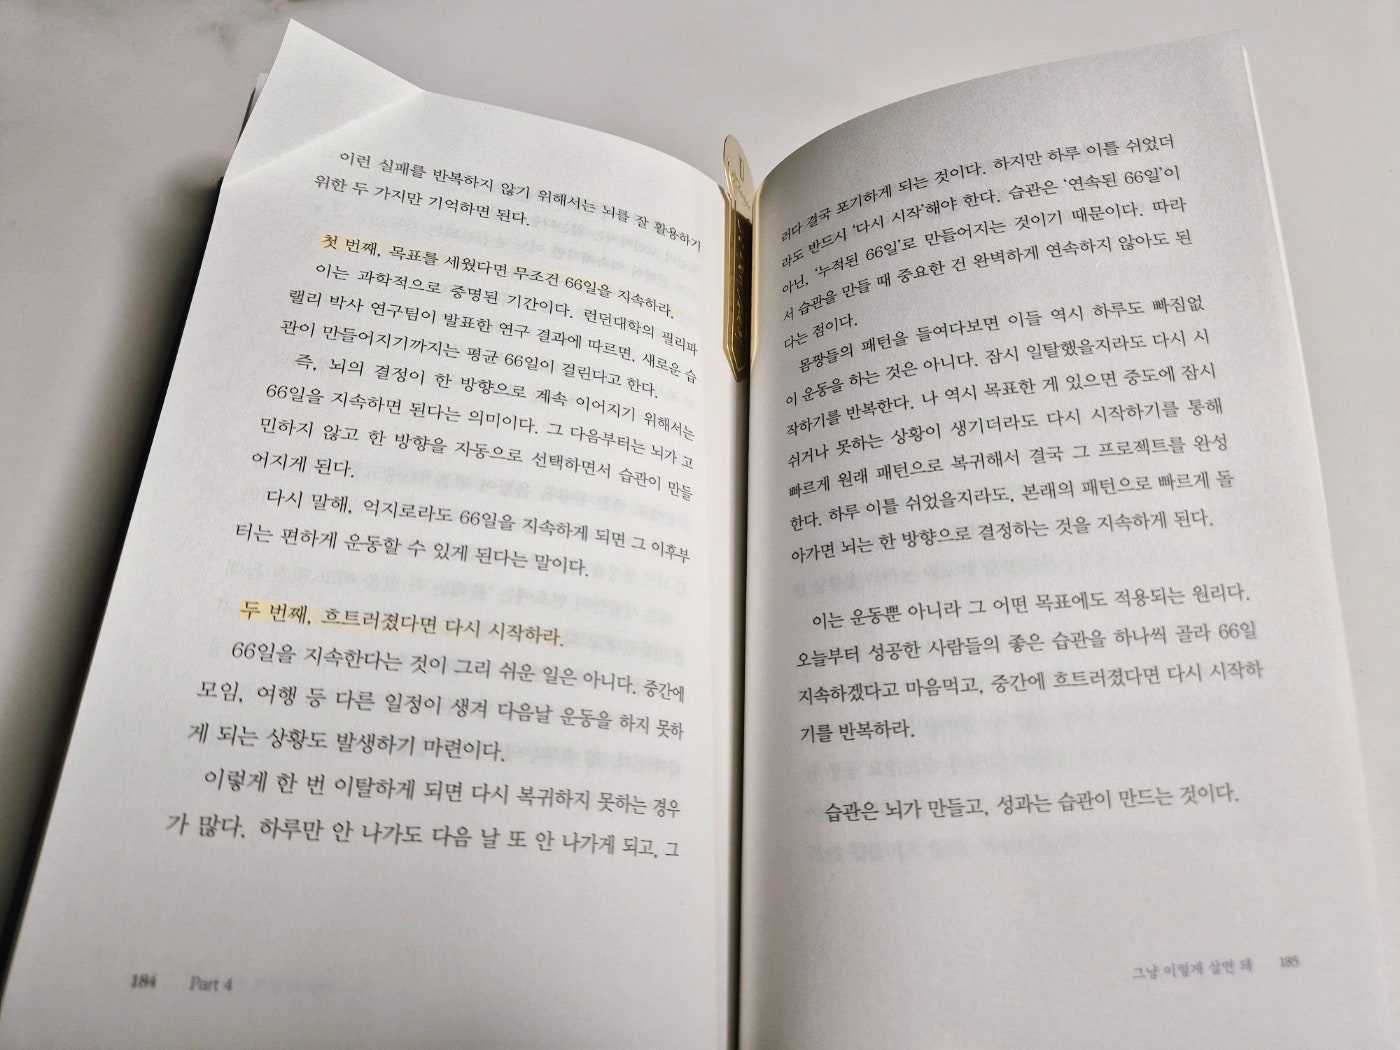 이런 실패를 반복하지 않기 위해서는 뇌를 잘 활용하기
위한 두 가지만 기억하면 된다.
첫 번째, 목표를 세웠다면 무조건 66일을 지속하라.
이는 과학적으로 증명된 기간이다. 런던대학의 필리파
랠리 박사 연구팀이 발표한 연구 결과에 따르면, 새로운 습
관이 만들어지기까지는 평균 66일이 걸린다고 한다.
즉, 뇌의 결정이 한 방향으로 계속 이어지기 위해서는
66일을 지속하면 된다는 의미이다. 그 다음부터는 뇌가 고
민하지 않고 한 방향을 자동으로 선택하면서 습관이 만들
어지게 된다.
다시 말해, 억지로라도 66일을 지속하게 되면 그 이후부
터는 편하게 운동할 수 있게 된다는 말이다.
두 번째, 흐트러졌다면 다시 시작하라.
66일을 지속한다는 것이 그리 쉬운 일은 아니다. 중간에
모임, 여행 등 다른 일정이 생겨 다음날 운동을 하지 못하
게 되는 상황도 발생하기 마련이다.
이렇게 한 번 이탈하게 되면 다시 복귀하지 못하는 경우
가 많다. 하루만 안 나가도 다음 날 또 안 나가게 되고, 그
184 Part 4
러다 결국 포기하게 되는 것이다. 하지만 하루 이틀 쉬었더
라도 반드시 '다시 시작'해야 한다. 습관은 '연속된 66일'이
아닌, '누적된 66일'로 만들어지는 것이기 때문이다. 따라
서 습관을 만들 때 중요한 건 완벽하게 연속하지 않아도 된
다는 점이다.
몸짱들의 패턴을 들여다보면 이들 역시 하루도 빠짐없
이 운동을 하는 것은 아니다. 잠시 일탈했을지라도 다시 시
작하기를 반복한다. 나 역시 목표한 게 있으면 중도에 잠시
쉬거나 못하는 상황이 생기더라도 다시 시작하기를 통해
빠르게 원래 패턴으로 복귀해서 결국 그 프로젝트를 완성
한다. 하루 이틀 쉬었을지라도, 본래의 패턴으로 빠르게 돌
아가면 뇌는 한 방향으로 결정하는 것을 지속하게 된다.
이는 운동뿐 아니라 그 어떤 목표에도 적용되는 원리다.
오늘부터 성공한 사람들의 좋은 습관을 하나씩 골라 66일
지속하겠다고 마음먹고, 중간에 흐트러졌다면 다시 시작하
기를 반복하라.
습관은 뇌가 만들고, 성과는 습관이 만드는 것이다.
그냥 이렇게 살면 돼 185